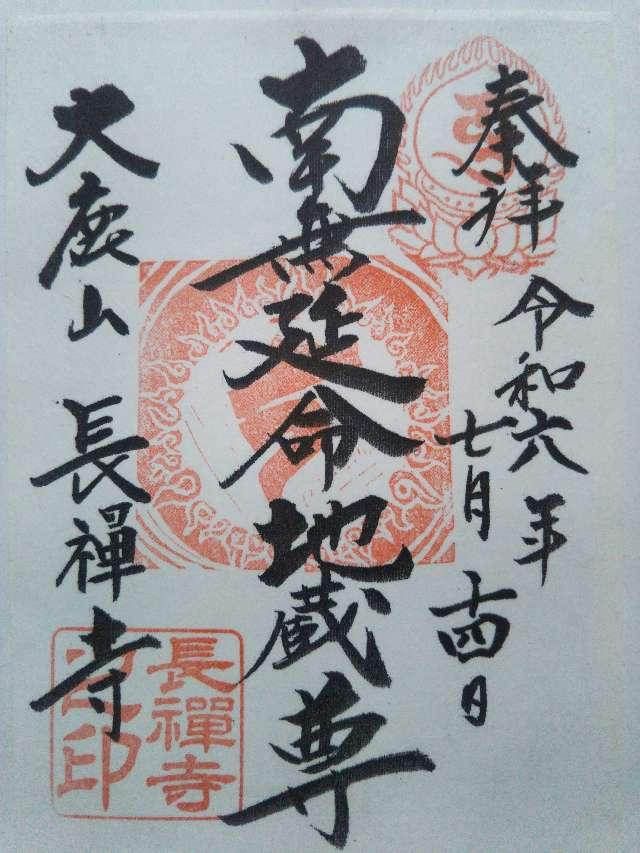 奉拝
令和六年
七月十四日
南無延命地蔵尊
大鹿山 長禅寺
長禅寺
印